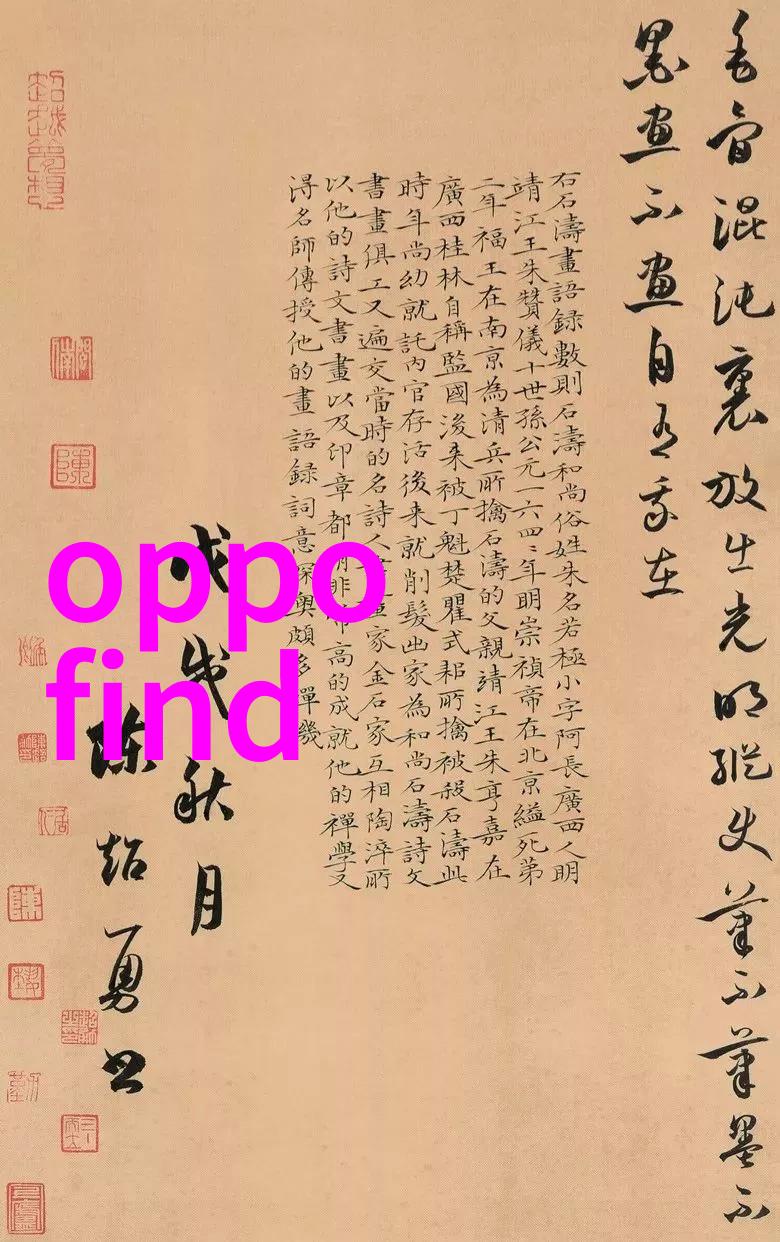 毛骨混沌裏放出光明縱使筆不筆墨不
墨畫不畫自有我在
右石濤畫語録數則石濤和尚俗姓朱名若極小字阿長廣西人明
靖江王朱贊儀十世孫公元一六四二年明崇禎帝在北京縊死第
二年福王在南京為清兵所擒石濤的父親靖江王朱亨嘉在
廣西桂林自稱監國後来被丁魁楚瞿式耜所擒被殺石濤此
時年尚幼就託內官存活後来就削髮出家為和尚石濤詩文
書畫俱工又遍交當時的名詩人畫家金石家互相陶淬所
以他的詩文書畫以及印章都非常高的成就他的禪學又
得名師傳授他的畫語録詞意深奥頗多禪機
戊戌秋月
陈勇书
oppo
find